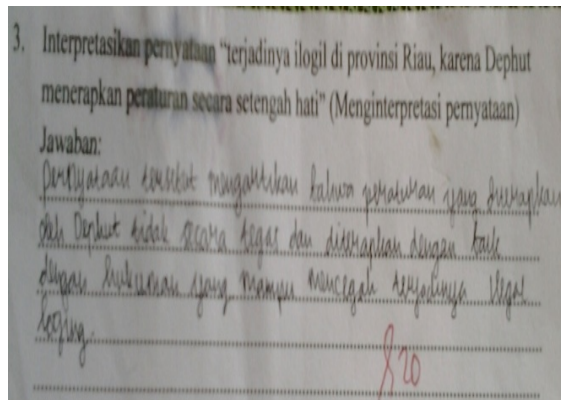 3. Interpretasikan pernyataan "terjadinya ilogil di provinsi Riau, karena Dephut
menerapkan peraturan secara setengah hati" (Menginterpretasi pernyataan)
Jawaban:
Pernyataan tersebut mengartikan bahwa peraturan yang diterapkan
oleh Dephut tidak secara tegas dan diterapkan dengan baik
dengan hukuman yang mampu mencegah terjadinya illegal
loging.
20